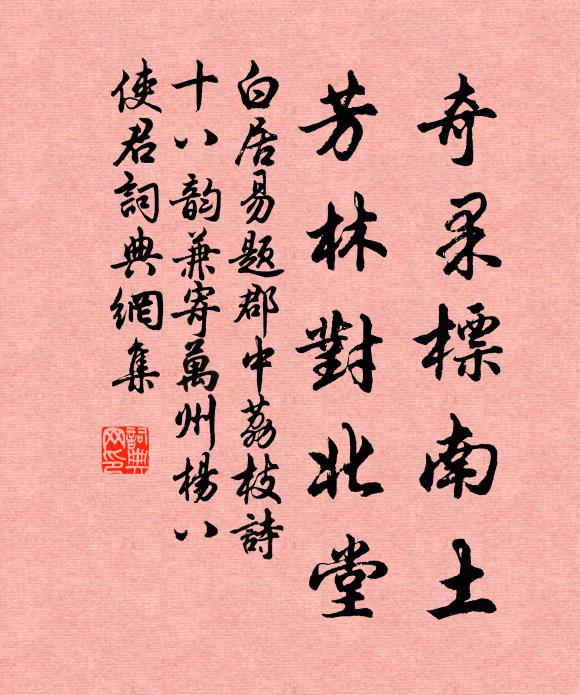 奇果標南土
芳林對北堂
白居易題郡中荔枝詩
十八韵兼寄萬州楊八
使君詞典網集
詞典
网印